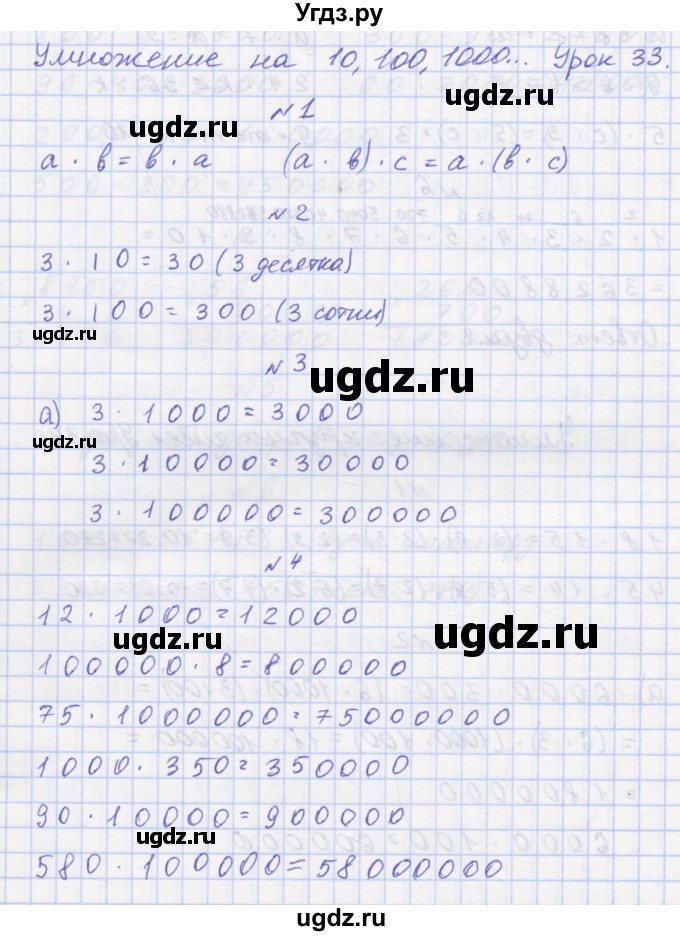 Угдз.ру
Умножение на 10, 100, 1000... Урок 33.
№1
ugdz.ru ugdz.ru
a · в = в · a (a · в) · c = a · (в · c)
№2
3 · 10 = 30 (3 десятка)
3 · 100 = 300 (3 сотни)
ugdz.ru
№3
ugdz.ru
а) 3 · 1000 = 3000
ugdz.ru
3 · 10000 = 30000
3 · 100000 = 300000
№4
12 · 1000 = 12000
ugdz.ru ugdz.ru
100000 · 8 = 800000
75 · 1000000 = 75000000
1000 · 350 = 350000
90 · 10000 = 900000
ugdz.ru
580 · 100000 = 58000000
ugdz.ru